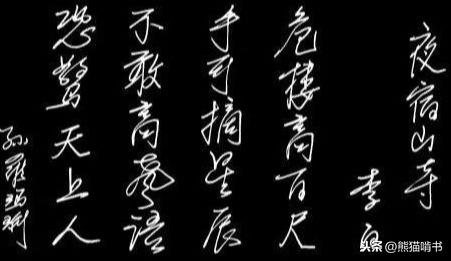 夜宿山寺
李白
危楼高百尺
手可摘星辰
不敢高聲语
恐驚天上人
头条 @熊猫啃书